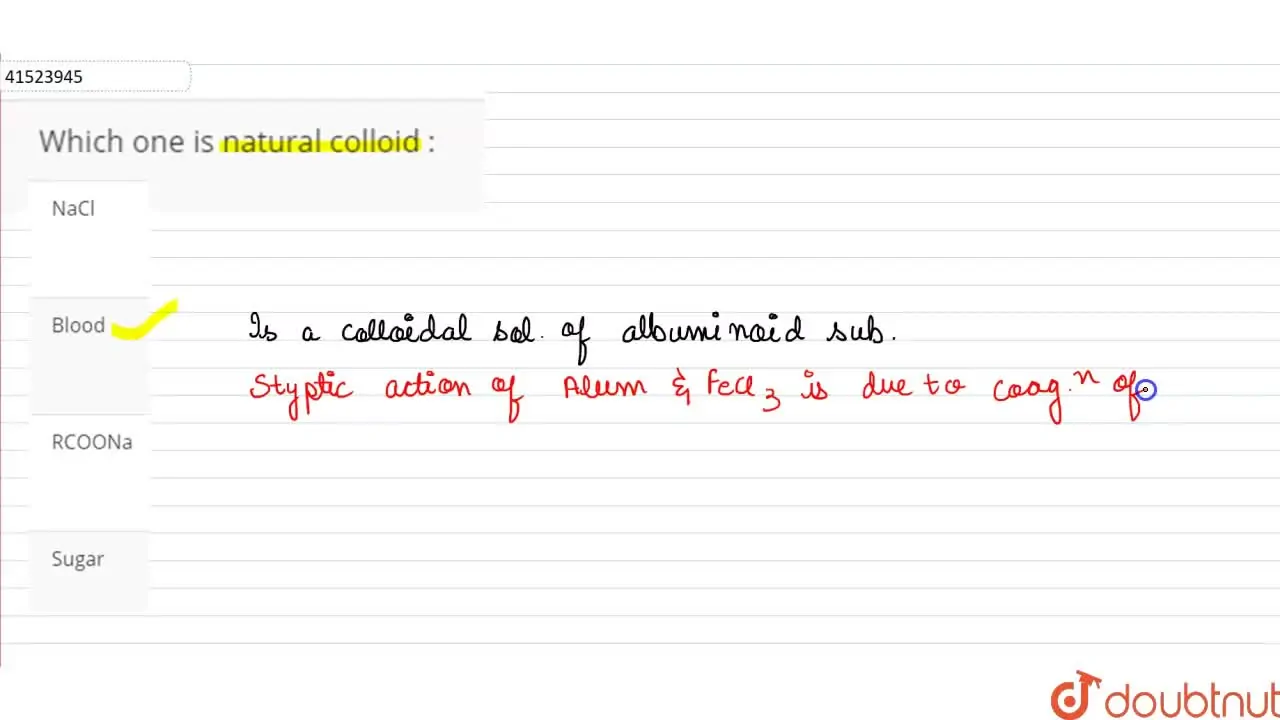 41523945
Which one is natural colloid :
NaCl
Blood
Is a colloidal sol. of albuminoid sub.
Styptic action of Alum & FeCl3 is due to coag.n of
RCOONa
Sugar
doubtnut